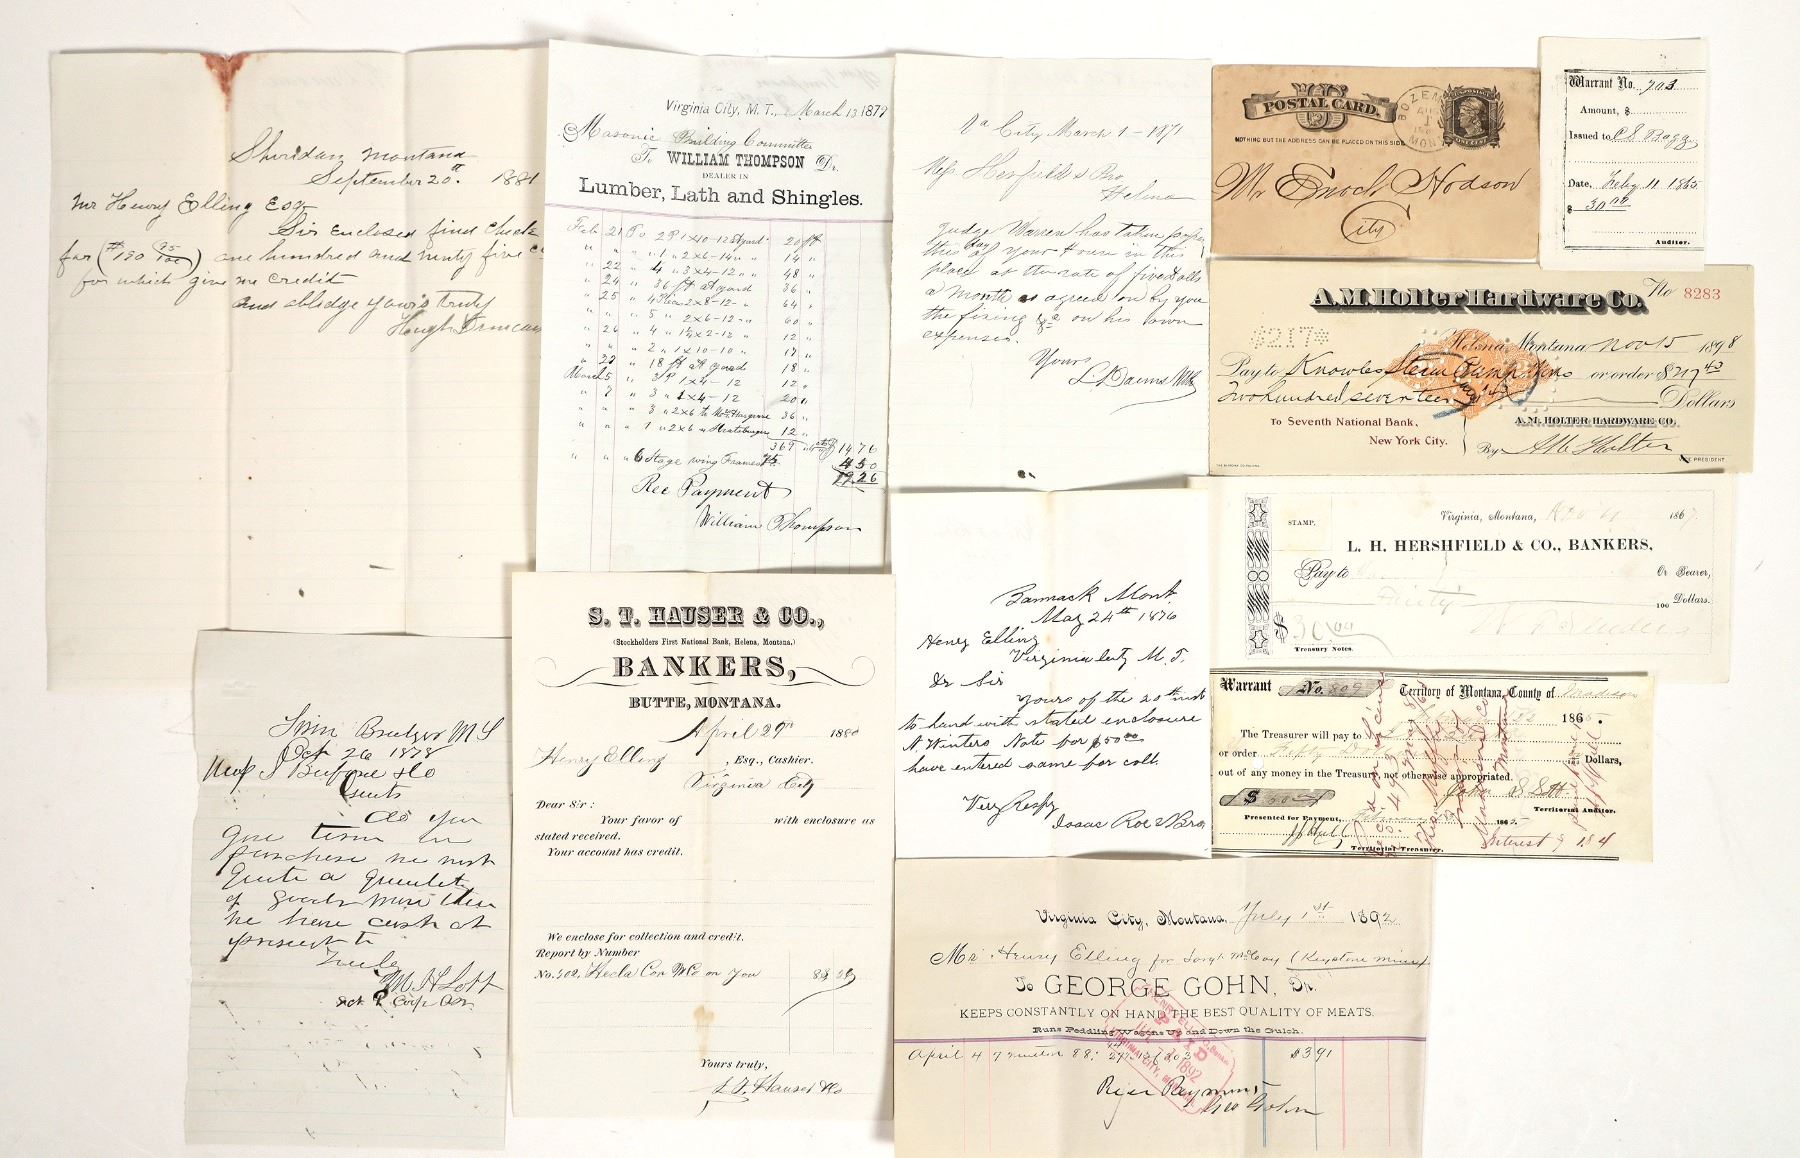 Sheridan Montana
September 20th. 1881
Mr Henry Elling Esq
Sir Enclosed find Check
for ($190 95/100) one hundred and ninty five
for which give me credit
and obledge yours truly
Hough Duncan
Virginia City, M. T., March 13 1879
Masonic Building Committee
To WILLIAM THOMPSON Dr.
DEALER IN
Lumber, Lath and Shingles.
Feb 21 To 2 P 1 x 10-12 at yard 20 ft
" " " 1 " 2 x 6-14 " " 14 "
" 22 " 4 " 3 x 4-12 " " 48 "
" 24 " 36 ft at yard 36 "
" 25 " 4 2 x 8-12 " 64 "
" " " 5 " 2 x 6-12 " " 60 "
" 26 " 4 " 1½ x 2-12 " 12 "
" " " 2 " 1 x 10-10 " 17 "
" " 18 ft at yard 18 "
March 5 " 3 P 1 x 4-12 12 "
" 7 " 3 " 1 x 4-12 20 "
" " " 3 " 2 x 6 to 36 "
" " " 1 " 2 x 6 " 12 "
369 1476
" " " 6 Stage wing Frames 75 4 50
19.26
Rec Payment
William Thompson
Va City March 1 - 1871
Helena
Judge Warren has taken
this day of your House in this
place at the rate of five
a month as agreed on by you
the fixing &c on his own
expenses.
Yours
U.S. POSTAL CARD.
ONE CENT
NOTHING BUT THE ADDRESS CAN BE PLACED ON THIS SIDE
BOZEMAN
MONT
Mr Enoch Hodson
City
Warrant No. 703
Amount, $
Issued to C S Bagg
Date, Feby 11 1865
$ 30 00
Auditor.
A.M. Holter Hardware Co. No 8283
$217$
Helena, Montana, Nov 15 1898
Pay to Knowles Steam Pump Wks or order $217 43
Two hundred seventeen Dollars
To Seventh National Bank,
New York City.
A.M. HOLTER HARDWARE CO.
By A M Holter
VICE PRESIDENT
STAMP.
Virginia, Montana, 1867.
L. H. HERSHFIELD & CO., BANKERS,
Pay to Or Bearer,
Thirty 100 Dollars.
$ 30.00
Treasury Notes.
Bannack Mont.
May 24th 1876
Henry Elling
Virginia City M. T.
Dr Sir
Yours of the 20th inst
to hand with stated enclosure
N Winters Note for $50 00
have entered same for colt.
Very Respy
Isaac Roe & Bro
Warrant No. 809 Territory of Montana, County of Madison
1865.
The Treasurer will pay to
or order Fifty Dollars,
out of any money in the Treasury not otherwise appropriated.
$ 50.00
Territorial Auditor.
Presented for Payment, 1865
Territorial Treasurer.
Interest $ 1.84
S. T. HAUSER & CO.,
(Stockholders First National Bank, Helena, Montana,)
BANKERS,
BUTTE, MONTANA.
April 29th 1880
Henry Elling, Esq., Cashier.
Virginia City
Dear Sir:
Your favor of with enclosure as
stated received.
Your account has credit.
We enclose for collection and credit.
Report by Number
No. 502, Hecla Con M Co on You
Yours truly,
S. T. Hauser & Co
Oct 26 1878
Gents
As you
gave terms on
purchase we want
Quite a quantity
of goods more than
we have cash at
present
M H Lott
Virginia City, Montana, July 1st 1892
Mr Henry Elling for Jos McCay (Keystone mine)
To GEORGE GOHN, Dr.
KEEPS CONSTANTLY ON HAND THE BEST QUALITY OF MEATS.
Runs Peddling Wagons Up and Down the Gulch.
April 4 $3 91
PAID
1892
Payment
Geo Gohn